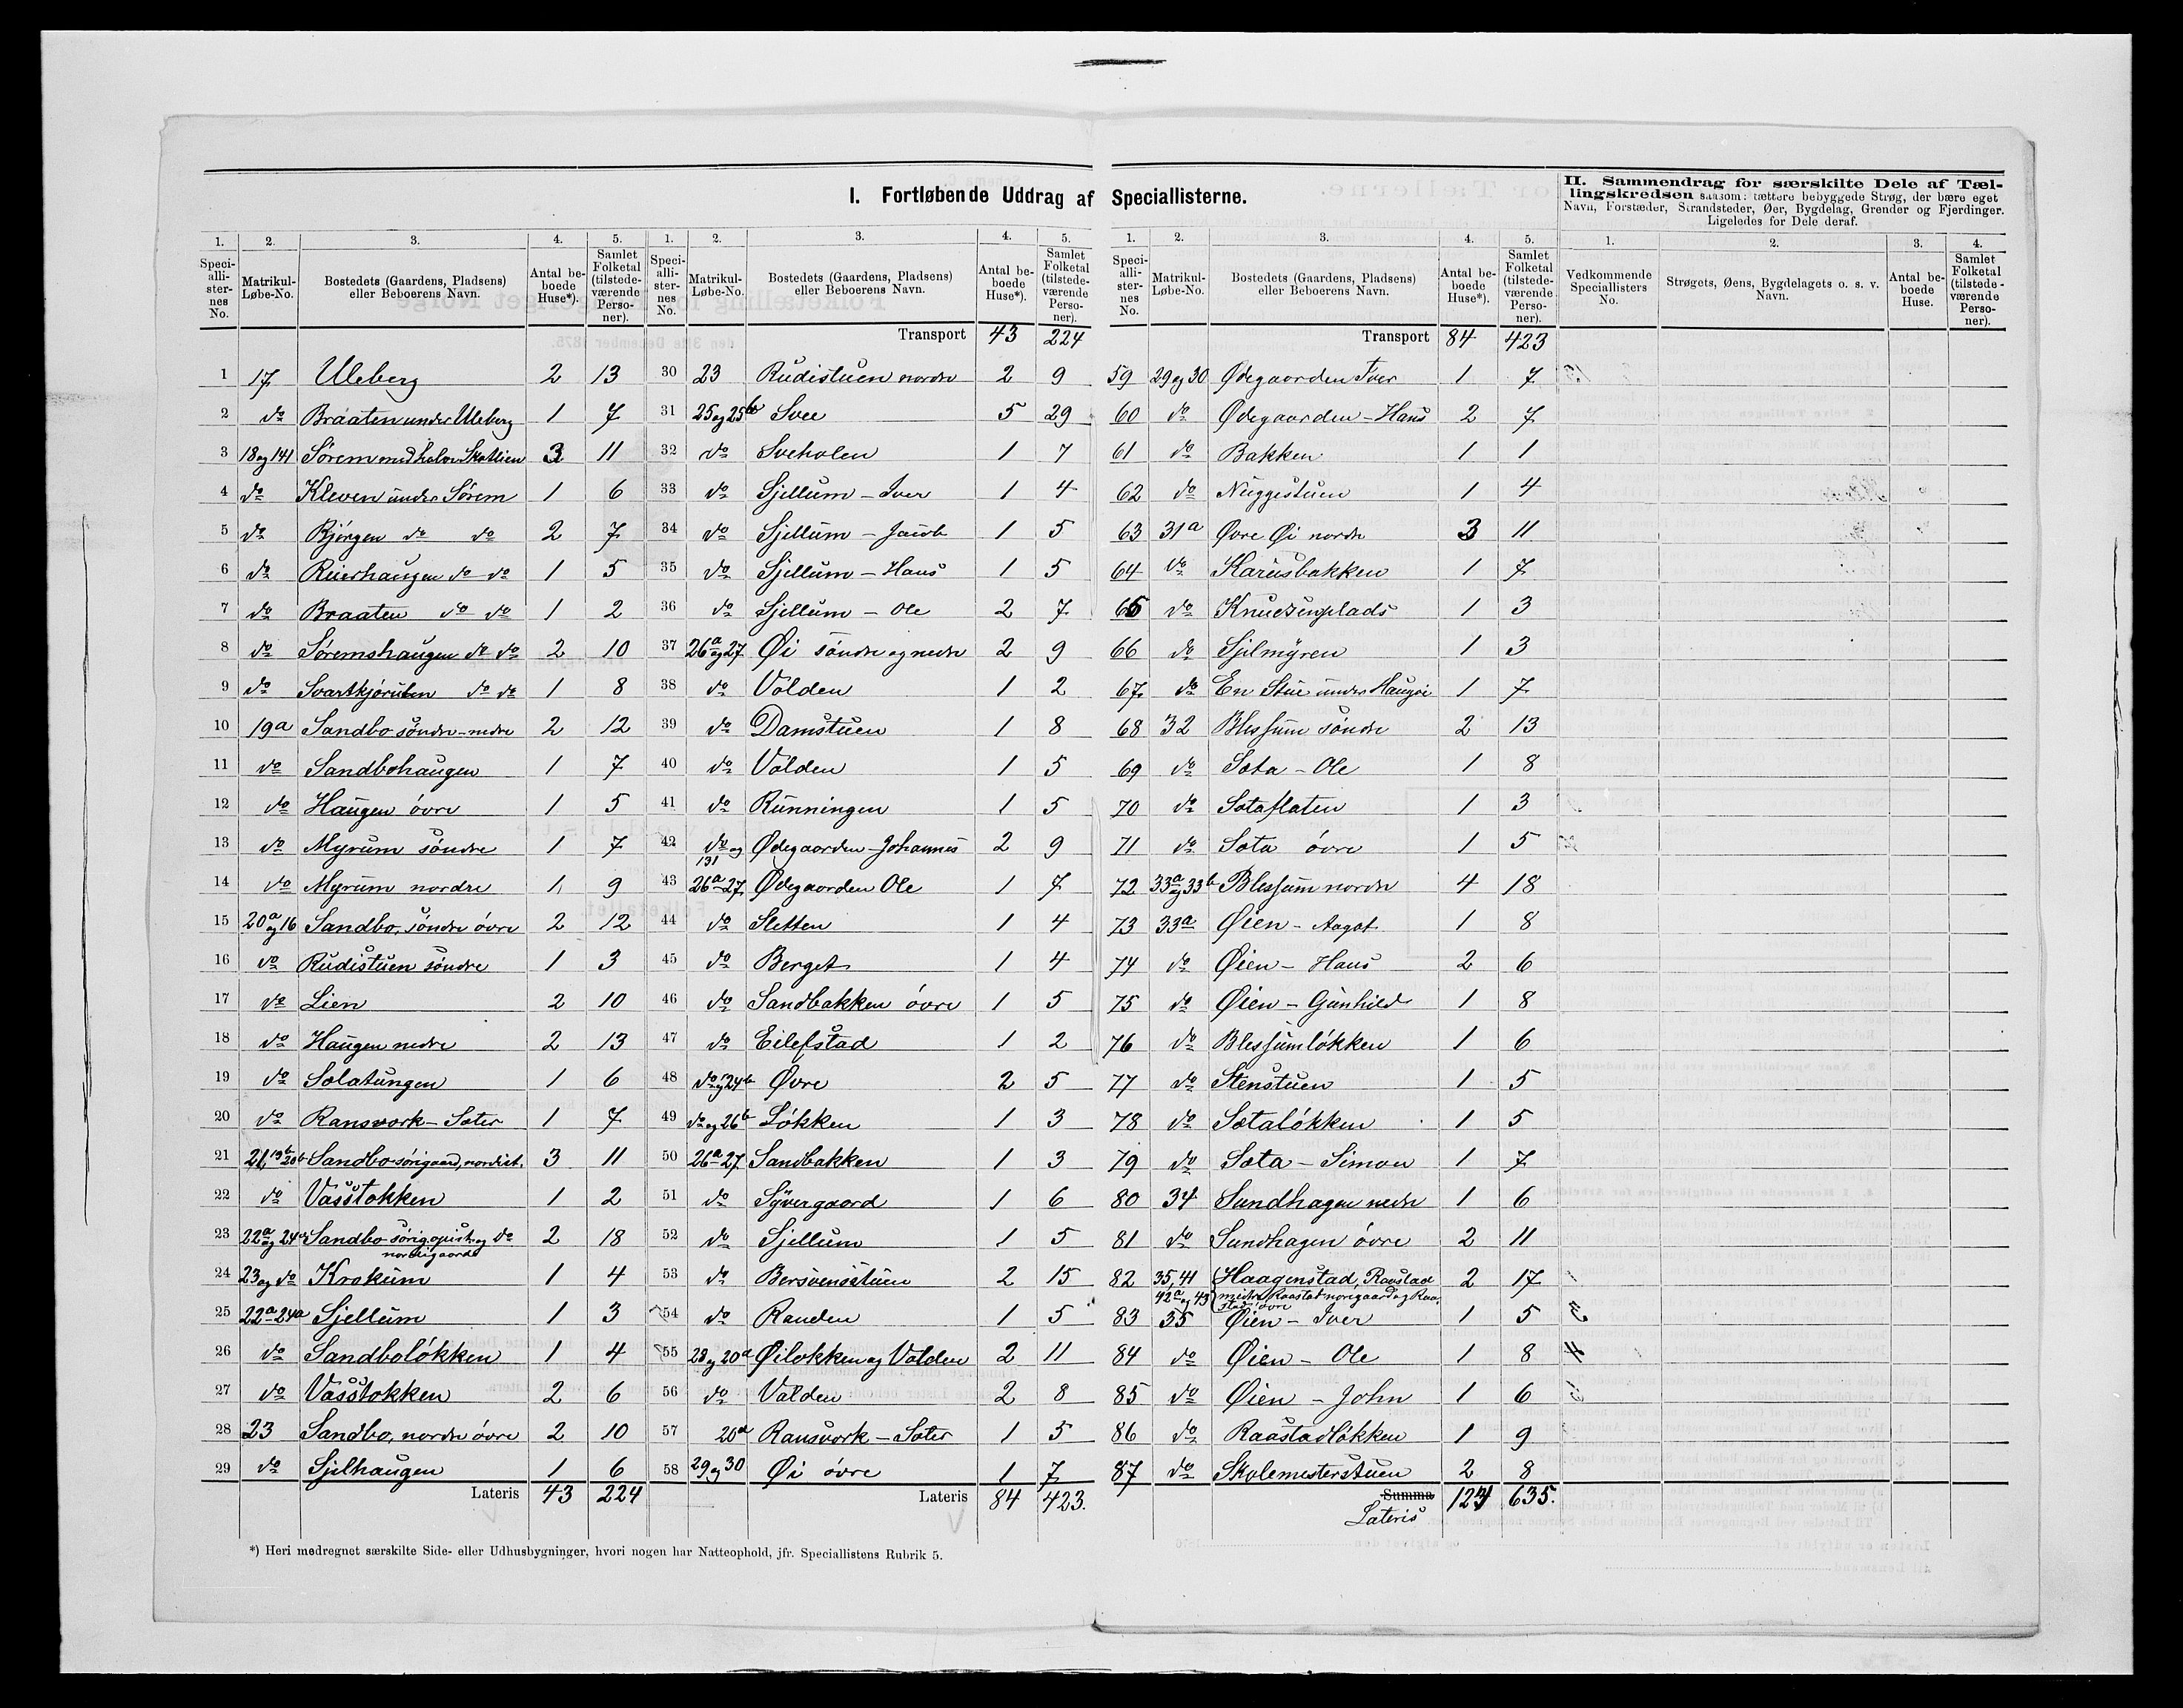 I. Fortløbende Uddrag af Speciallisterne.
1. 2. 3. 4. 5.
Speci-alli-ster-nes No. Matrikul-Løbe-No. Bostedets (Gaardens, Pladsens) eller Beboerens Navn. Antal be-boede Huse*). Samlet Folketal (tilstede-værende Perso-ner).
1 17 Uleberg 2 13
2 do Braaten under Uleberg 1 7
3 18 og 141 Sørem med halve Skatlien 3 11
4 do Kleven under Sørem 1 6
5 do Bjørgen do do 2 7
6 do Reierhaugen do do 1 5
7 do Braaten do do 1 2
8 do Søremshaugen do do 2 10
9 do Svartkjørulen do do 1 8
10 19a Sandbo søndre-nedre 2 12
11 do Sandbohaugen 1 7
12 do Haugen övre 1 5
13 do Myrum söndre 1 7
14 do Myrum nordre 1 9
15 20a og 16 Sandbo, söndre övre 2 12
16 do Rudistuen söndre 1 3
17 do Lien 2 10
18 do Haugen nedre 2 13
19 do Solatungen 1 6
20 do Ransvork-Sæter 1 7
21 21, 19b 20b Sandbo sörigaard, nordist. 3 11
22 do Vasstokken 1 2
23 22a og 24a Sandbo sörig.opist. og do nordigaard 2 18
24 23 og do Krokum 1 4
25 22a-24a Sjellum 1 3
26 do Sandbolökken 1 4
27 do Vasstokken 2 6
28 23 Sandbo, nordre övre 2 10
29 do Sjelhaugen 1 6
Lateris 43 224
1. 2. 3. 4. 5.
Speci-alli-ster-nes No. Matrikul-Løbe-No. Bostedets (Gaardens, Pladsens) eller Beboerens Navn. Antal be-boede Huse*). Samlet Folketal (tilstede-værende Perso-ner).
Transport 43 224
30 23 Rudistuen nordre 2 9
31 25 og 25b Svee 5 29
32 do Sveholen 1 7
33 do Sjellum - Iver 1 4
34 do Sjellum - Jacob 1 5
35 do Sjellum - Hans 1 5
36 do Sjellum - Ole 2 7
37 26a og 27 Øi söndre og nedre 2 9
38 do Volden 1 2
39 do Damstuen 1 8
40 do Volden 1 5
41 do Runningen 1 5
42 do og 131 Ødegaarden-Johannes 2 9
43 26a-27 Ødegaarden Ole 1 7
44 do Sletten 1 4
45 do Berget 1 4
46 do Sandbakken övre 1 5
47 do Eilefstad 1 2
48 do og 24b Øvre 2 5
49 do og 26b Lökken 1 3
50 26a-27 Sandbakken 1 3
51 do Syvergaard 1 6
52 do Sjellum 1 5
53 do Bersvenstuen 2 15
54 do Randen 1 5
55 28 og 20a Øilokken og Volden 2 11
56 do Volden 2 8
57 20a Ransvork - Sæter 1 5
58 29 og 30 Øi övre 1 7
Lateris 84 423.
1. 2. 3. 4. 5.
Speci-alli-ster-nes No. Matrikul-Løbe-No. Bostedets (Gaardens, Pladsens) eller Beboerens Navn. Antal be-boede Huse*). Samlet Folketal (tilstede-værende Perso-ner).
Transport 84 423
59 29 og 30 Ødegaarden Iver 1 7
60 do Ødegaarden - Hans 2 7
61 do Bakken 1 1
62 do Nuggestuen 1 4
63 31a Øvre Øi nordre 3 11
64 do Karusbakken 1 7
65 do 1 3
66 do Sjelmyren 1 3
67 do En Stue under Haugöi 1 7
68 32 Blessum söndre 2 13
69 do Sota - Ole 1 8
70 do Sotaflaten 1 3
71 do Sota övre 1 5
72 33a og 33b Blessum nordre 4 18
73 33a Øien - Aagot 1 8
74 do Øien - Hans 2 6
75 do Øien - Gunhild 1 8
76 do Blessumlökken 1 6
77 do Stenstuen 1 5
78 do Sotalökken 1 5
79 do Sota - Simon 1 7
80 34 Sundhagen nedre 1 6
81 do Sundhagen övre 2 11
82 35, 41 42a og 43 Haagenstad, Raastad nedre, Raastad norigaard og Raastad övre 2 17
83 35 Øien - Iver 1 5
84 do Øien - Ole 1 8
85 do Øien - John 1 6
86 do Raastadlökken 1 9
87 do Skolemesterstuen 2 8
Summa Lateris 124 635.
II. Sammendrag for særskilte Dele af Tæl-
lingskredsen saasom: tættere bebyggede Strøg, der bære eget
Navn, Forstæder, Strandsteder, Øer, Bygdelag, Grender og Fjerdinger.
Ligeledes for Dele deraf.
1. 2. 3. 4.
Vedkommende Speciallisters No. Strøgets, Øens, Bygdelagets o. s. v. Navn. Antal be-boede Huse. Samlet Folketal (tilstede-værende Perso-ner).
*) Heri medregnet særskilte Side- eller Udhusbygninger, hvori nogen har Natteophold, jfr. Speciallistens Rubrik 5.